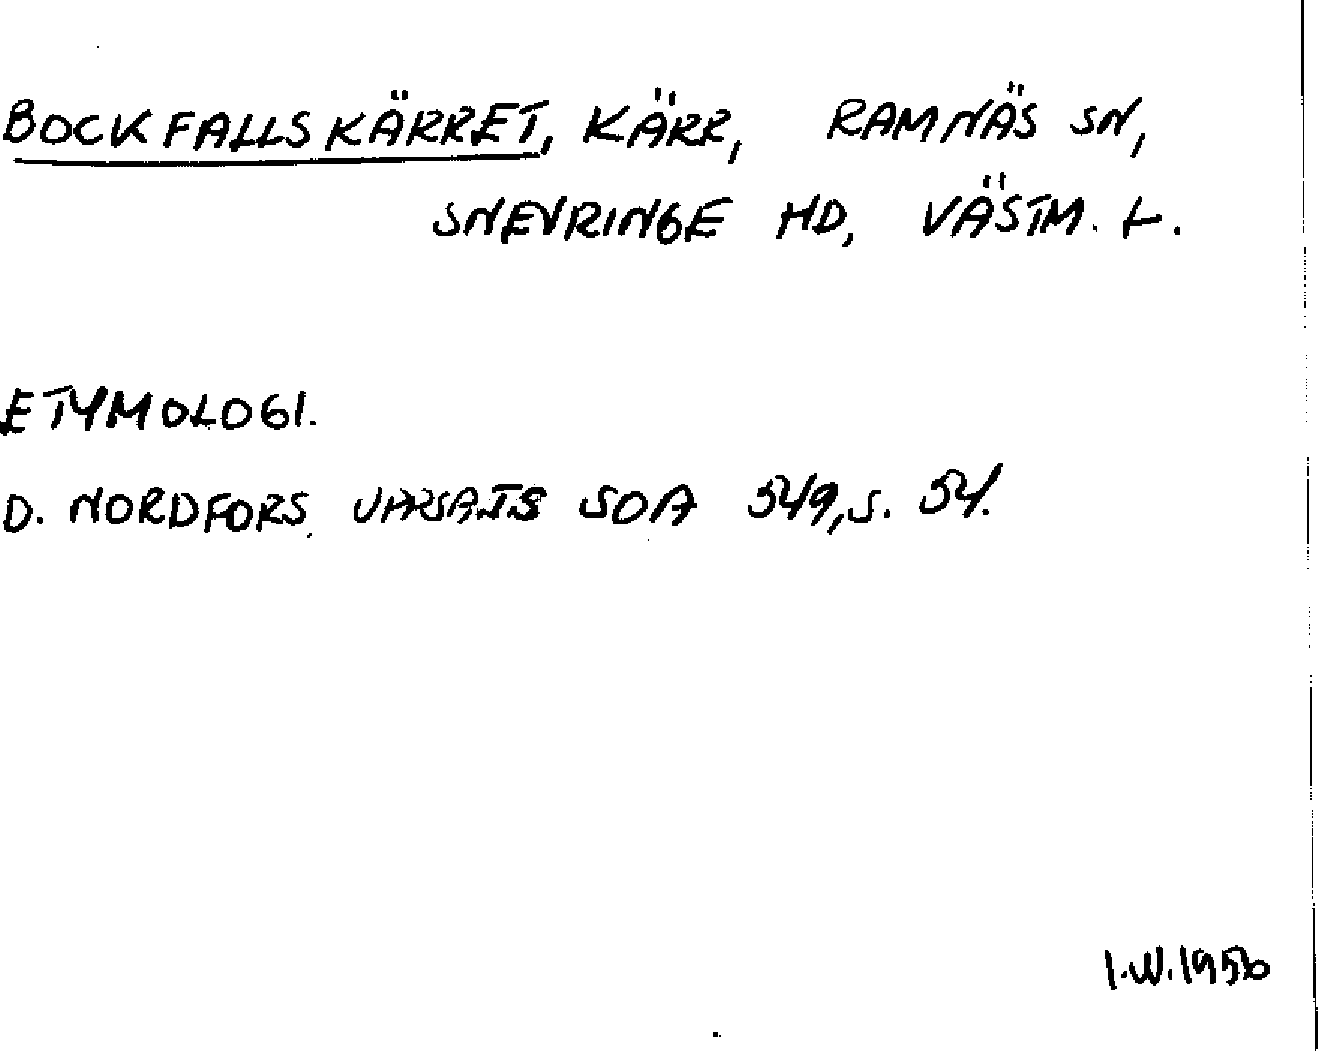 BOCKFALLSKÄRRET, KÄRR, RAMNÄS SN,
SNEVRINGE HD, VÄSTM. L.
ETYMOLOGI.
D. NORDFORS, UPPSATS SOA 549, S. 54.
I.W. 1956